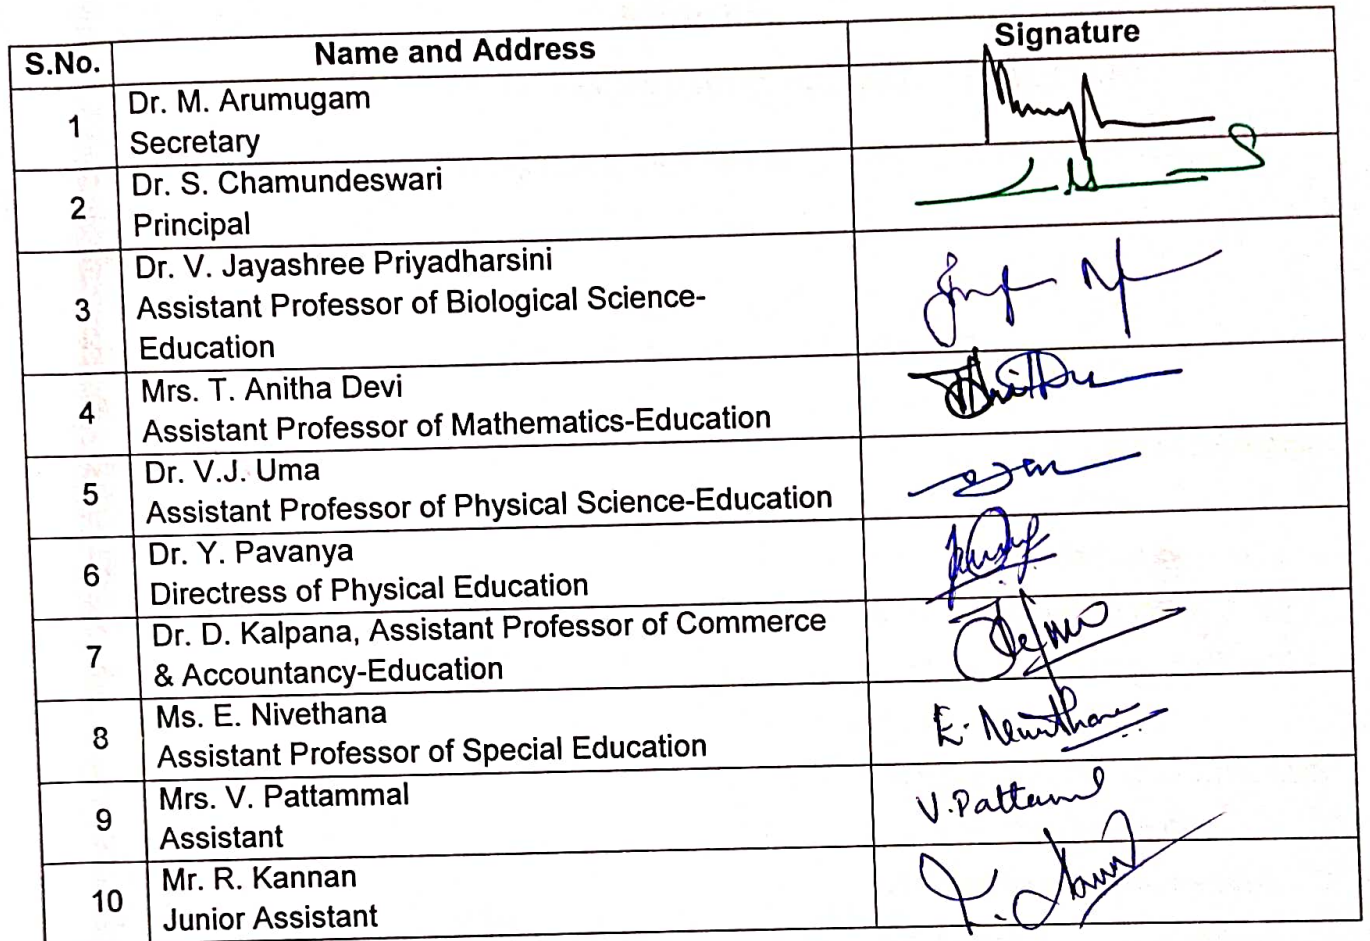 S.No. Name and Address Signature
1 Dr. M. Arumugam
Secretary
2 Dr. S. Chamundeswari
Principal
3 Dr. V. Jayashree Priyadharsini
Assistant Professor of Biological Science-
Education
4 Mrs. T. Anitha Devi
Assistant Professor of Mathematics-Education
5 Dr. V.J. Uma
Assistant Professor of Physical Science-Education
6 Dr. Y. Pavanya
Directress of Physical Education
7 Dr. D. Kalpana, Assistant Professor of Commerce
& Accountancy-Education
8 Ms. E. Nivethana
Assistant Professor of Special Education
9 Mrs. V. Pattammal
Assistant
10 Mr. R. Kannan
Junior Assistant